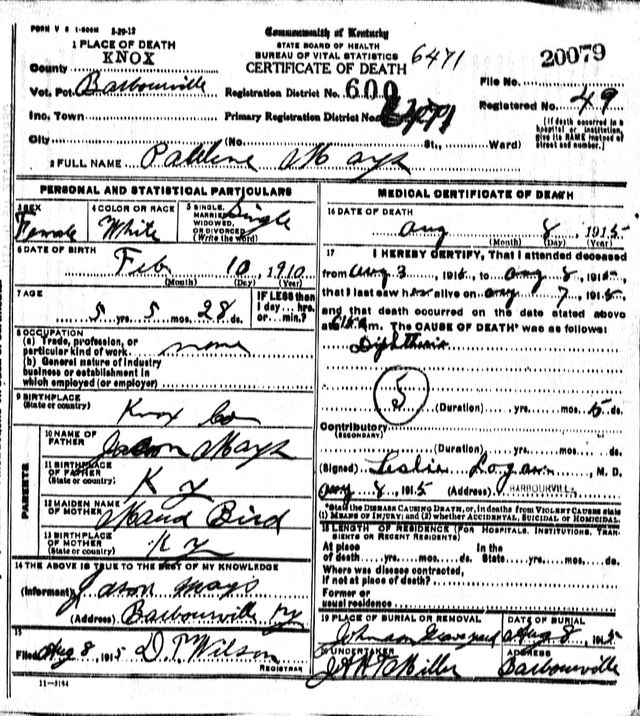 FORM V S 1-500M 2-29-12
Commonwealth of Kentucky
STATE BOARD OF HEALTH
BUREAU OF VITAL STATISTICS
CERTIFICATE OF DEATH
6471
20079
1 PLACE OF DEATH
County KNOX
Vot. Pct. Barbourville
Inc. Town
City (No. St., Ward)
Registration District No. 600
Primary Registration District No. 6471
File No.
Registered No. 49
(If death occurred in a
hospital or institution,
give its NAME instead of
street and number.)
2 FULL NAME Pauline Mays
PERSONAL AND STATISTICAL PARTICULARS
3 SEX
Female
4 COLOR OR RACE
White
5 SINGLE,
MARRIED,
WIDOWED,
OR DIVORCED
(Write the word)
Single
6 DATE OF BIRTH
Feb 10, 1910
(Month) (Day) (Year)
7 AGE
5 yrs. 5 mos. 28 ds.
IF LESS than
1 day... hrs.
or... min.?
8 OCCUPATION
(a) Trade, profession, or
particular kind of work none
(b) General nature of industry
business or establishment in
which employed (or employer)
9 BIRTHPLACE
(State or country)
Knox Co
PARENTS
10 NAME OF
FATHER
Jason Mays
11 BIRTHPLACE
OF FATHER
(State or country)
Ky
12 MAIDEN NAME
OF MOTHER
Maud Bird
13 BIRTHPLACE
OF MOTHER
(State or country)
Ky
14 THE ABOVE IS TRUE TO THE BEST OF MY KNOWLEDGE
(Informant) Jason Mays
(Address) Barbourville Ky
15
Filed Aug 8, 1915 D.T. Wilson
REGISTRAR
11-3184
MEDICAL CERTIFICATE OF DEATH
16 DATE OF DEATH
Aug 8, 1915
(Month) (Day) (Year)
17 I HEREBY CERTIFY, That I attended deceased
from Aug 3, 1915, to Aug 8, 1915,
that I last saw her alive on Aug 7, 1915,
and that death occurred on the date stated above
at m. The CAUSE OF DEATH* was as follows:
Diphtheria
5
(Duration) yrs. mos. 5 ds.
Contributory
(SECONDARY)
(Duration) yrs. mos. ds.
(Signed) Leslie Logan, M. D.
Aug 8, 1915 (Address) BARBOURVILLE
*State the DISEASE CAUSING DEATH, or, in deaths from VIOLENT CAUSES state
(1) MEANS OF INJURY; and (2) whether ACCIDENTAL, SUICIDAL or HOMICIDAL.
18 LENGTH OF RESIDENCE (FOR HOSPITALS, INSTITUTIONS, TRAN-
SIENTS OR RECENT RESIDENTS)
At place In the
of death yrs. mos. ds. State yrs. mos. ds.
Where was disease contracted,
if not at place of death?
Former or
usual residence
19 PLACE OF BURIAL OR REMOVAL
Johnson Graveyard
DATE OF BURIAL
Aug 8, 1915
20 UNDERTAKER
Miller
ADDRESS
Barbourville